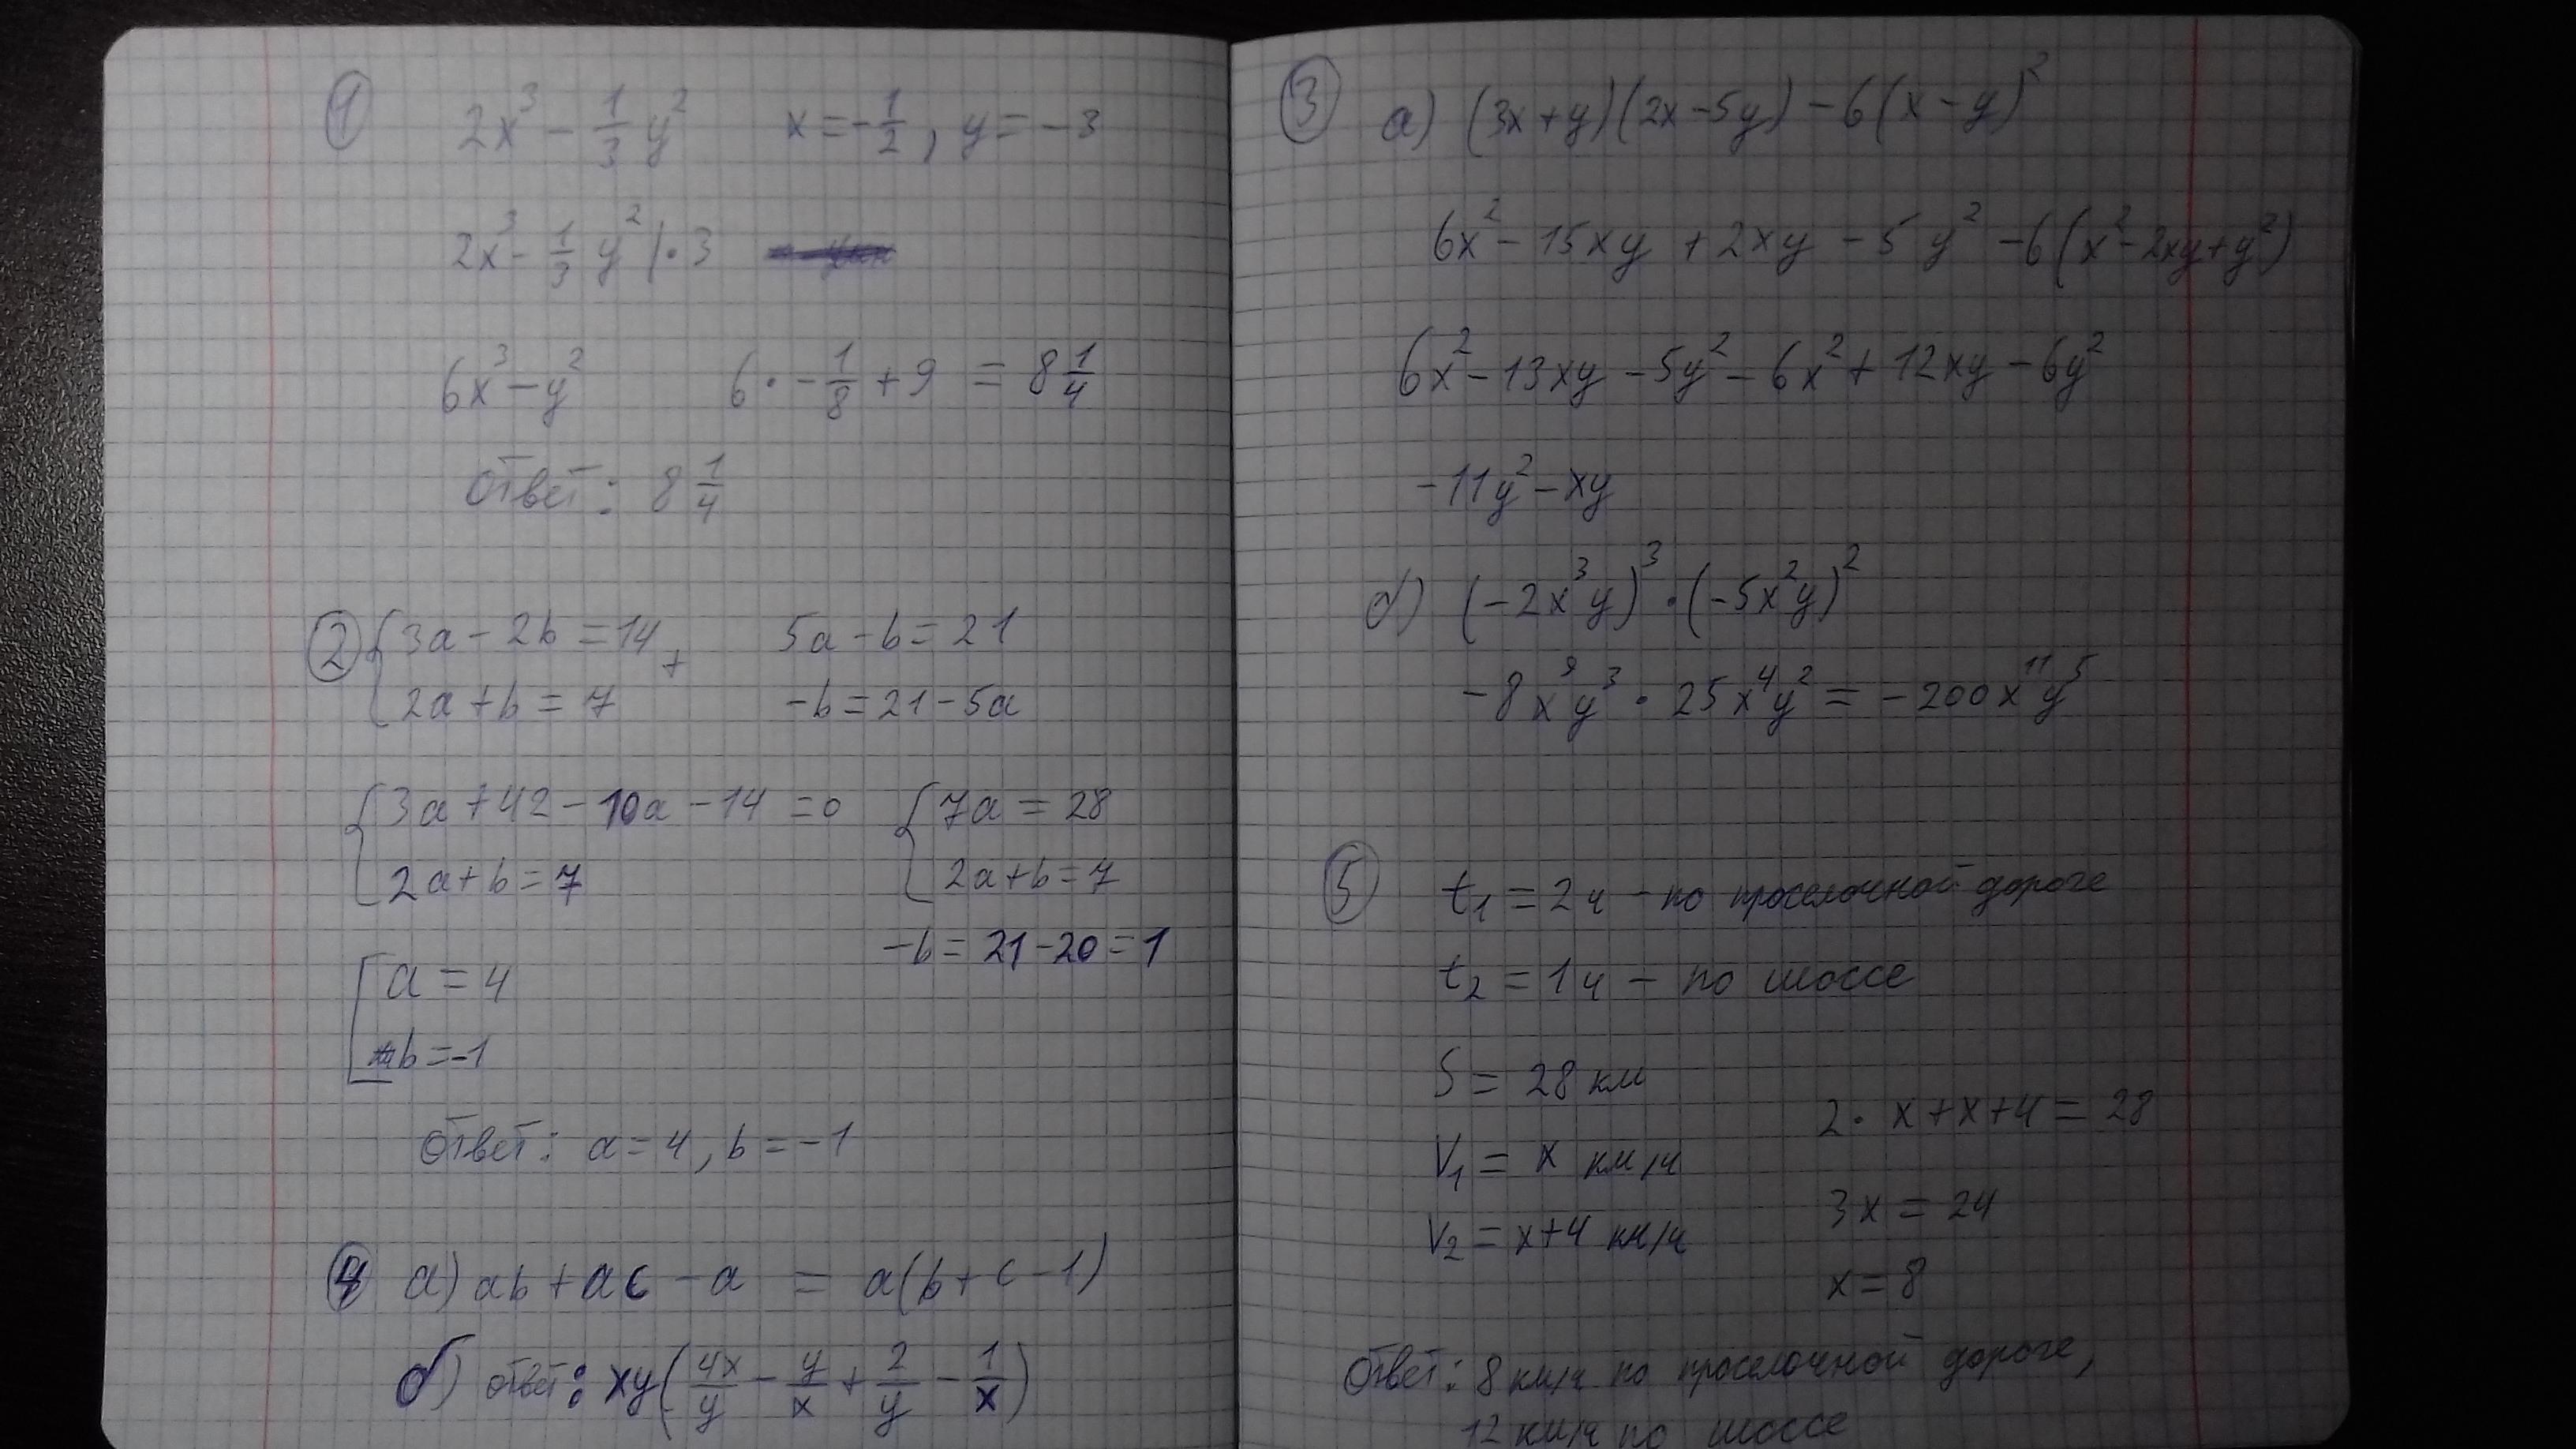 1 2x³ - 1/3 y² x = -1/2, y = -3
2x³ - 1/3 y² | · 3
6x³ - y² 6 · -1/8 + 9 = 8 1/4
Ответ: 8 1/4
2 { 3a - 2b = 14 + 5a - b = 21
2a + b = 7 -b = 21 - 5a
{ 3a + 42 - 10a - 14 = 0 { 7a = 28
2a + b = 7 2a + b = 7
-b = 21 - 20 = 1
[ a = 4
b = -1
Ответ: a = 4, b = -1
4 а) ab + ac - a = a(b + c - 1)
б) ответ: xy(4x/y - y/x + 2/y - 1/x)
3 а) (3x + y)(2x - 5y) - 6(x - y)²
6x² - 15xy + 2xy - 5y² - 6(x² - 2xy + y²)
6x² - 13xy - 5y² - 6x² + 12xy - 6y²
-11y² - xy
б) (-2x³y)³ · (-5x²y)²
-8x⁹y³ · 25x⁴y² = -200x¹¹y⁵
5 t₁ = 2ч - по проселочной дороге
t₂ = 1ч - по шоссе
S = 28 км
2 · x + x + 4 = 28
V₁ = x км/ч
3x = 24
V₂ = x + 4 км/ч
x = 8
Ответ: 8 км/ч по проселочной дороге,
12 км/ч по шоссе